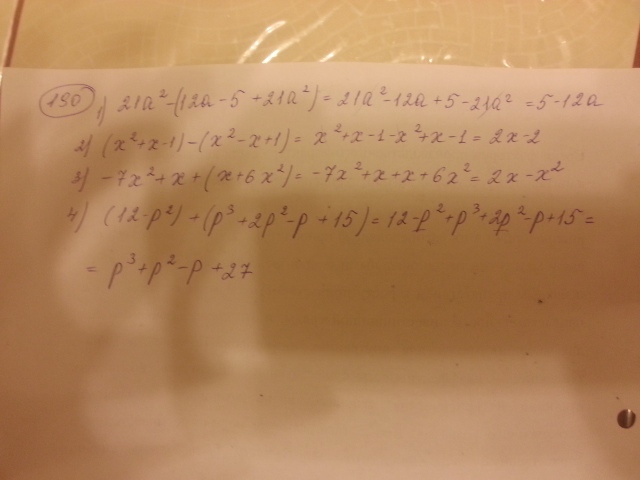 190
1) 21a²-(12a-5+21a²)=21a²-12a+5-21a²=5-12a
2) (x²+x-1)-(x²-x+1)=x²+x-1-x²+x-1=2x-2
3) -7x²+x+(x+6x²)=-7x²+x+x+6x²=2x-x²
4) (12-p²)+(p³+2p²-p+15)=12-p²+p³+2p²-p+15=
=p³+p²-p+27